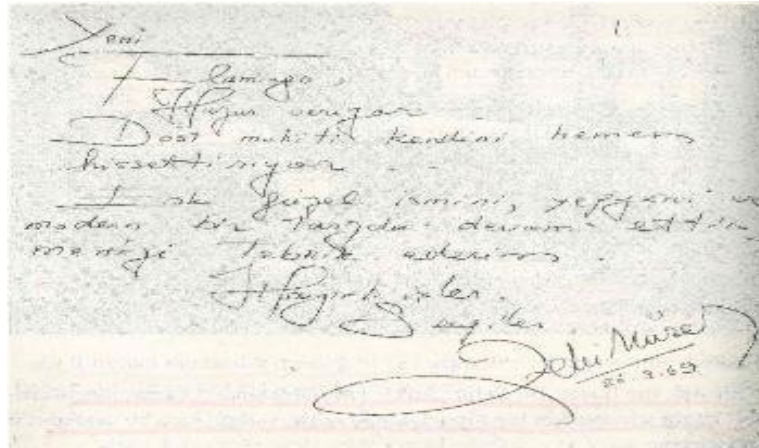 Yeni
Flamingo,
Huzur veriyor
Dost muhitin kendini hemen
hissettiriyor . .
İlk güzel ismini, yepyeni ve
modern bir tarzda devam ettir-
menizi tebrik ederim.
Hayırlı işler.
Sevgiler
Zeki Müren